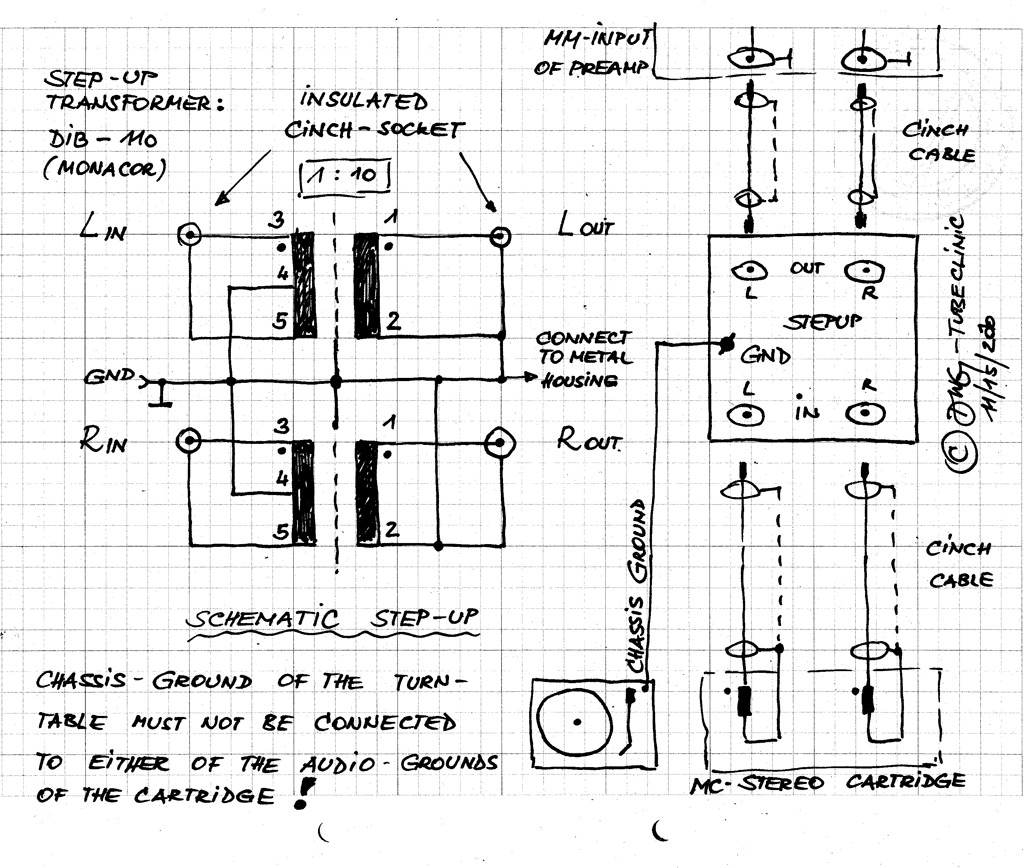 STEP-UP
TRANSFORMER:
DIB-110
(MONACOR)
INSULATED
CINCH-SOCKET
1:10
L IN
3
4
5
1
2
L OUT
CONNECT
TO METAL
HOUSING
GND
R IN
3
4
5
1
2
R OUT
SCHEMATIC STEP-UP
CHASSIS-GROUND OF THE TURN-
TABLE MUST NOT BE CONNECTED
TO EITHER OF THE AUDIO-GROUNDS
OF THE CARTRIDGE !
MM-INPUT
OF PREAMP
CINCH
CABLE
OUT
L R
STEPUP
GND
L R
IN
CINCH
CABLE
CHASSIS GROUND
MC-STEREO CARTRIDGE
TUBECLINIC